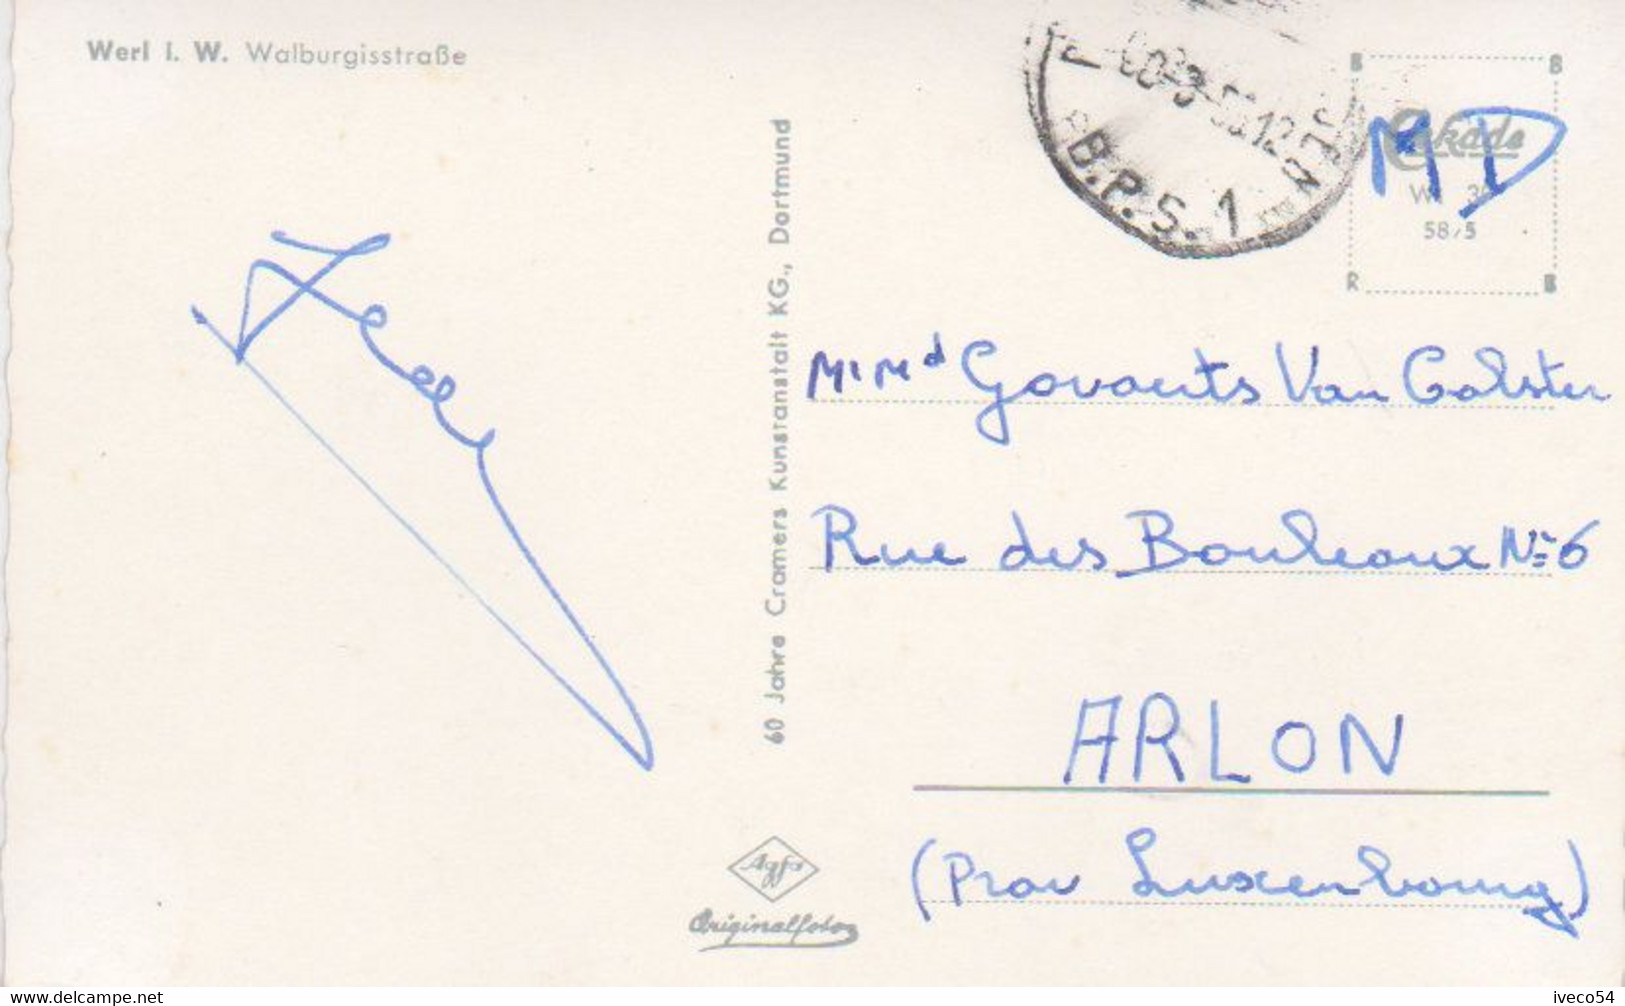 Werl i. W. Walburgisstraße
B.P.S. 1
B B
Cekade
MD
W 36
58/5
R B
60 Jahre Cramers Kunstanstalt KG., Dortmund
Mr Md Govaerts Van Calster
Rue des Bouleaux N=6
ARLON
(Prov Luxembourg)
Agfa
Originalfoto
www.delcampe.net
iveco54